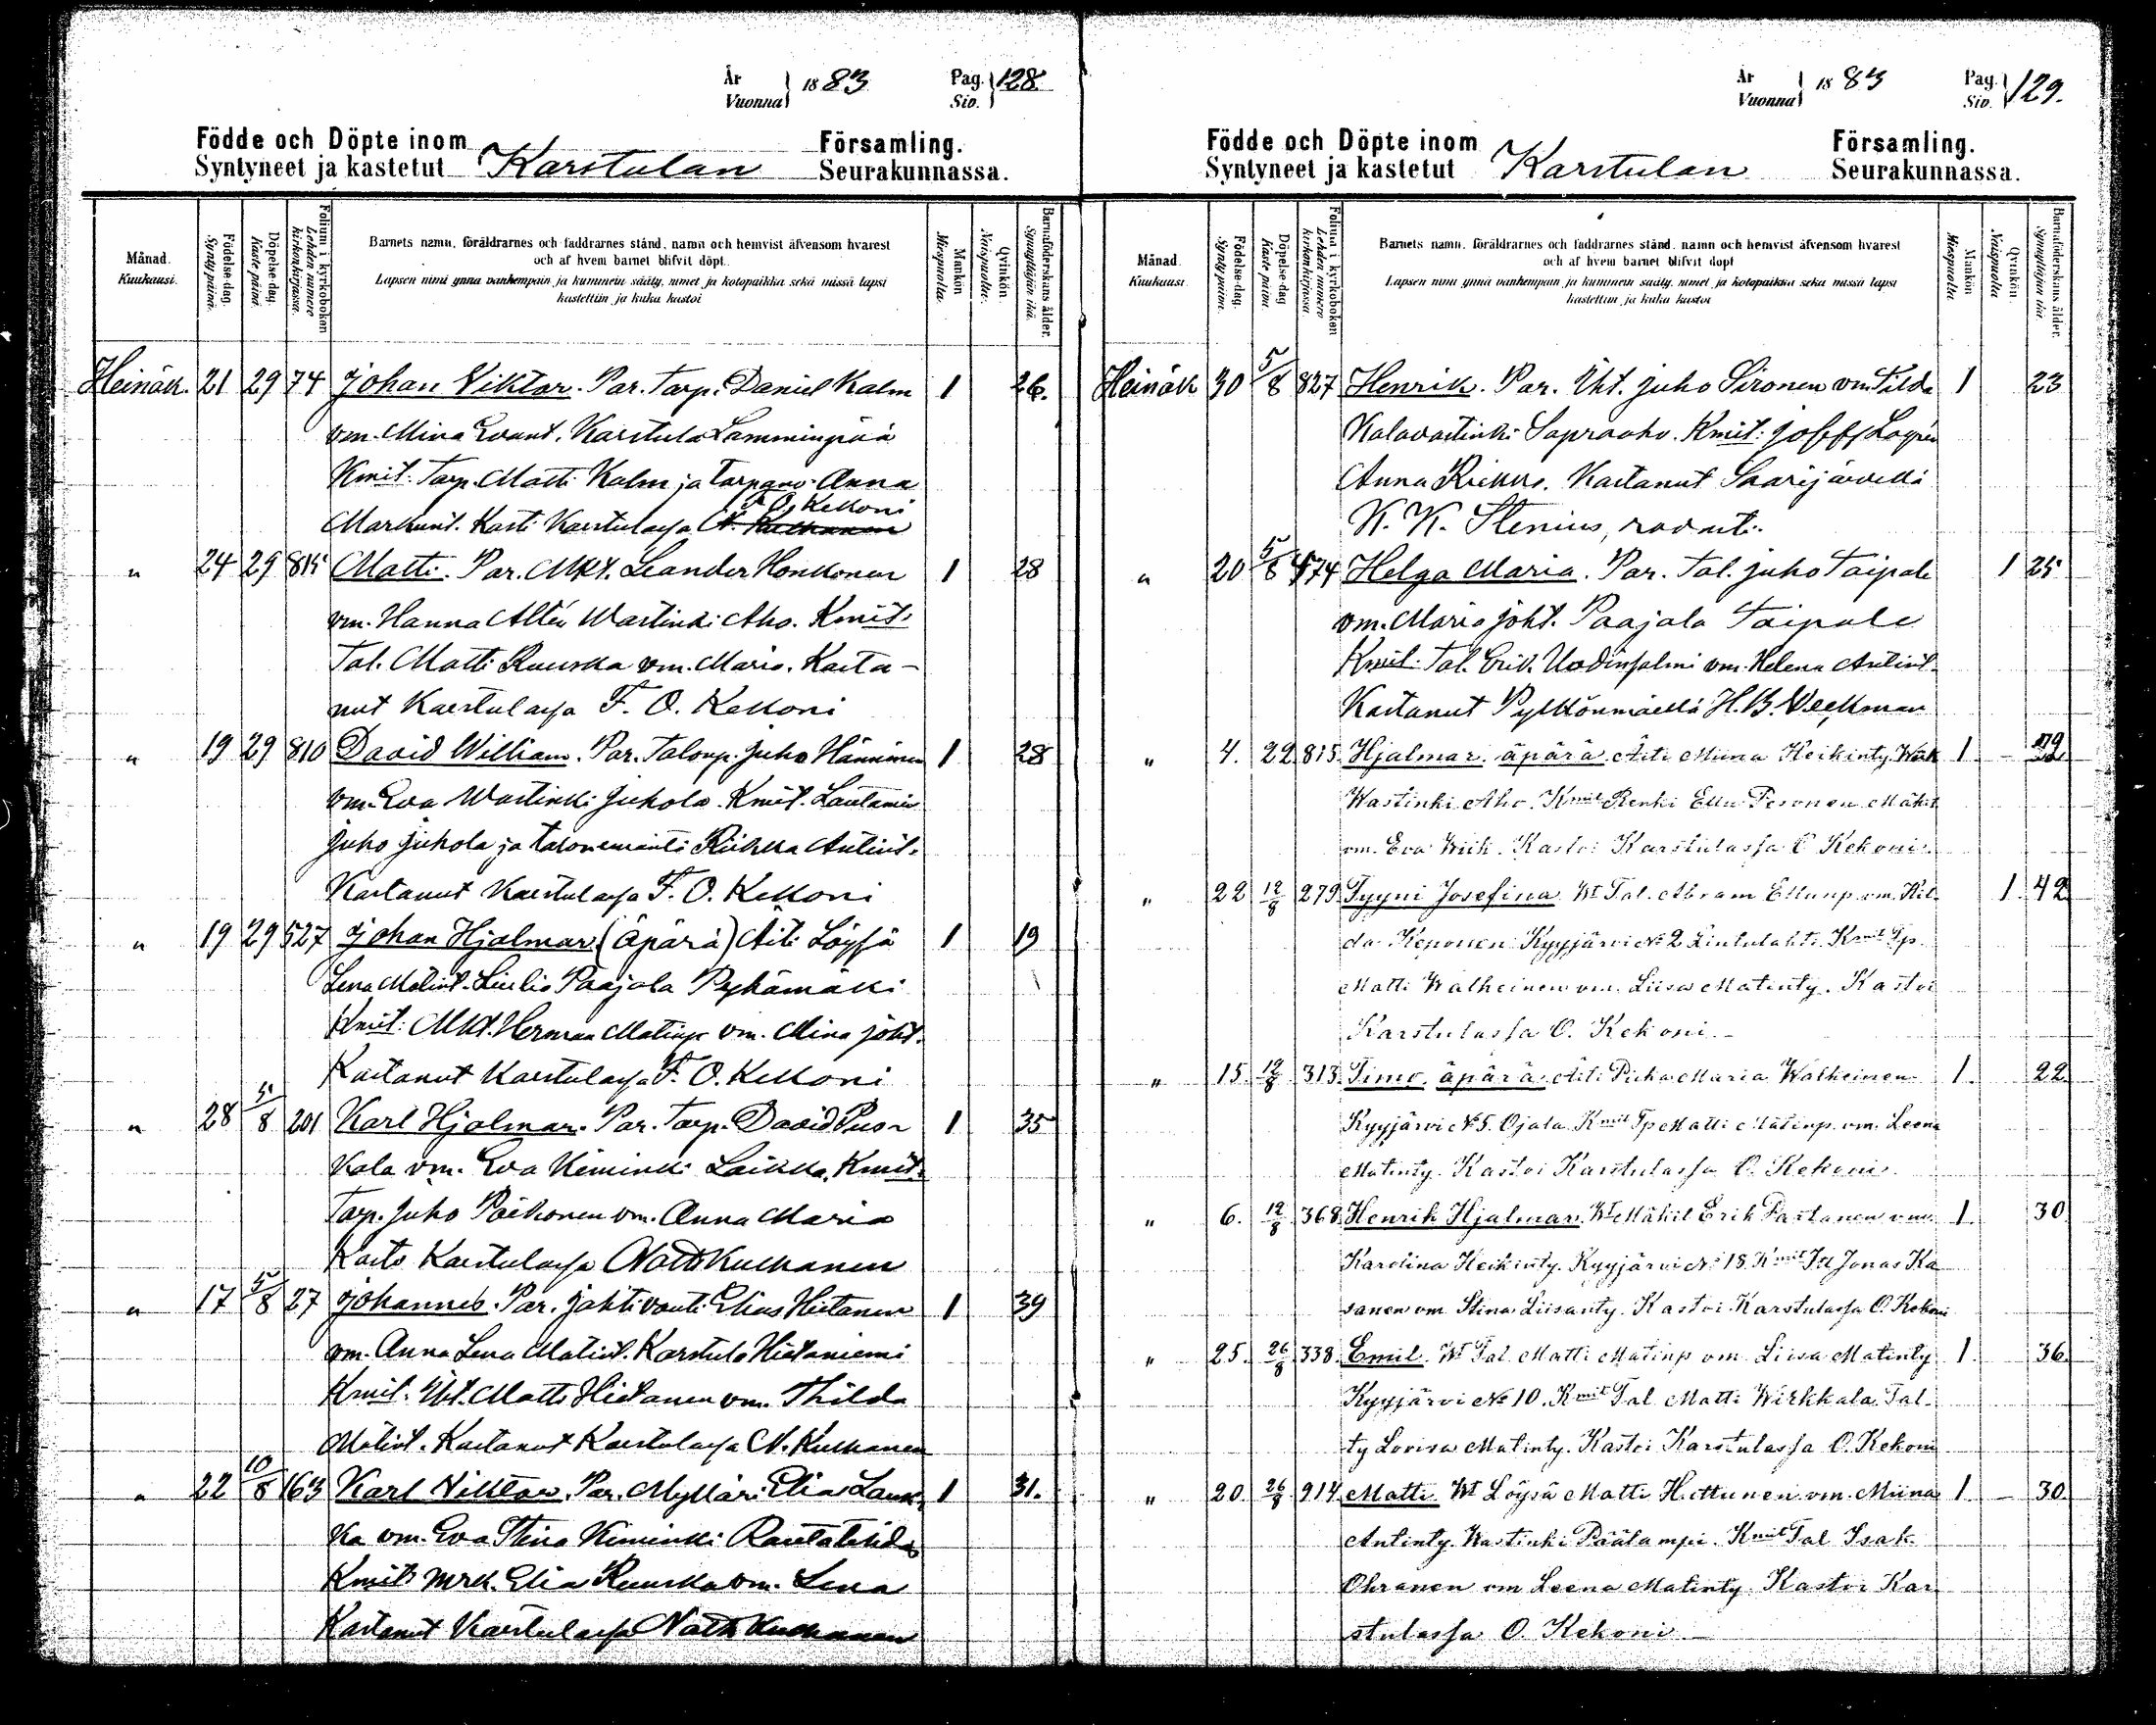 År Vuonna 1883 Pag. Siv. 128.
Födde och Döpte inom Församling.
Syntyneet ja kastetut Karstulan Seurakunnassa.
Månad. Kuukausi.
Födelse-dag. Synty päivä.
Döpelse-dag. Kaste päivä.
Folium i kyrkoboken Lehden numero kirkonkirjassa.
Barnets namn, föräldrarnes och faddrarnes stånd, namn och hemvist äfvensom hvarest
och af hvem barnet blifvit döpt.
Lapsen nimi ynnä vanhempain ja kummein sääty, nimet ja kotopaikka sekä missä lapsi
kastettiin ja kuka kastoi
Mankön Miespuolia.
Qvinkön. Naispuolia.
Barnaföderskans ålder. Synnyttäjän ikä.
Heinäk. 21 29 74 Johan Viktor. Par. Tarp. Daniel Kalm 1 26.
vm. Mina Evant. Karstula Lamminpää
Kmit. Tarp. Matti Kalm ja Anna
F. O. Kekkoni
Kast. Karstulassa
" 24 29 815 Matti. Par. Mkt. Leander Honkonen 1 28
vm. Hanna Altén Wastinki Aho. Kmit.
Tal. Matti Ruuska vm. Maria. Kasta-
nut Karstulassa F. O. Kekkoni
" 19 29 810 David William. Par. Talonp. Juho Hänninen 1 28
vm. Eva Wastinki Juhola. Kmit. Lautamies
Juho Juhola ja talonemäntä Riikka Antint.
Kastanut Karstulassa F. O. Kekkoni
" 19 29 527 Johan Hjalmar (äpärä) Äiti Löysä 1 19
Lena Matint. Paajala Pyhämäki
Kmit: Mkt. Herman Matinp vm. Mina joht.
Kastanut Karstulassa F. O. Kekkoni
" 28 5/8 201 Karl Hjalmar. Par. Tarp. David Puso 1 35
kala vm. Eva Kiminki Laikka. Kmit.
Tarp. Juho Poikonen vm. Anna Maria
Kasto Karstulassa Nath Kukkanen
" 17 5/8 27 Johannes. Par. Jahtivouti Elias Hietanen 1 39
vm. Anna Lena Matint. Karstula Hietaniemi
Kmit. Matti Hietanen vm. Thilda
Matint. Kastanut Karstulassa N. Kukkanen
" 22 10/8 163 Karl Viktor. Par. Mylläri Elias Lauk- 1 31.
ka vm. Eva Stina Kiminki
Kmit. Elia Ruuska vm. Lena
Kastanut Karstulassa Nath Kukkanen
År Vuonna 1883 Pag. Siv. 129.
Födde och Döpte inom Församling.
Syntyneet ja kastetut Karstulan Seurakunnassa.
Månad. Kuukausi.
Födelse-dag. Synty päivä.
Döpelse-dag Kaste päivä.
Folium i kyrkoboken Lehden numero kirkonkirjassa.
Barnets namn, föräldrarnes och faddrarnes stånd, namn och hemvist äfvensom hvarest
och af hvem barnet blifvit döpt
Lapsen nimi ynnä vanhempain ja kummein sääty, nimet ja kotopaikka sekä missä lapsi
kastettiin ja kuka kastoi
Mankön Miespuolia
Qvinkön. Naispuolia
Barnaföderskans ålder. Synnyttäjän ikä.
Heinäk 30 5/8 827 Henrik. Par. Juho Sironen vm. Tilda 1 23
Kalavastinki. Kmit: Josef
Anna. Kastanut Saarijärvellä
K. K. Stenius, rovasti.
" 20 5/8 574 Helga Maria. Par. Tal. Juho Taipale 1 25
vm. Maria joht. Paajala Taipale
Kmit. Tal. Erik. vm. Helena Antint.
Kastanut Pylkönmäellä H. B. Weckman
" 4. 22 815 Hjalmar. äpärä. Äiti Miina Heikinty. Wiik 1. - 19.
Wastinki Aho. Kmit Renki Ellu Pesonen Mäkit
vm. Eva Wiik. Kastoi Karstulassa O Kekoni.
" 22 12/8 279. Tyyni Josefina. Wt Tal. Abram Ellunp. vm. Hil- 1. 42
da Keponen Kyyjärvi No 2 Lintulahti. Kmit Tp.
Matti Walkeinen vm. Liisa Matinty. Kastoi
Karstulassa O. Kekoni.
" 15 12/8 313. Timo. äpärä. Äiti Piika Maria Walkeinen 1. 22.
Kyyjärvi No 5. Ojala Kmit Tp Matti Matinp. vm. Leena
Matinty. Kastoi Karstulassa O. Kekoni.
" 6. 12/8 368 Henrik Hjalmar. Wt Mäkit Erik Pastanen vm. 1. 30
Karolina Heikinty. Kyyjärvi No 18. Kmit Itt Jonas Ka
sanen vm Stina Liisanty. Kastoi Karstulassa O. Kekoni
" 25. 26/8 338. Emil. Wt Tal. Matti Matinp vm. Liisa Matinty 1. 36.
Kyyjärvi No 10. Kmit Tal Matti Wirkkala. Tal-
ty Lovisa Matinty. Kastoi Karstulassa O. Kekoni
" 20. 26/8 914. Matti. Wt Löysä Matti Huttunen vm. Miina 1. - 30.
Antinty. Wastinki Päälampi. Kmit Tal Isak
Ohranen vm Leena Matinty. Kastoi Kar-
stulassa O. Kekoni